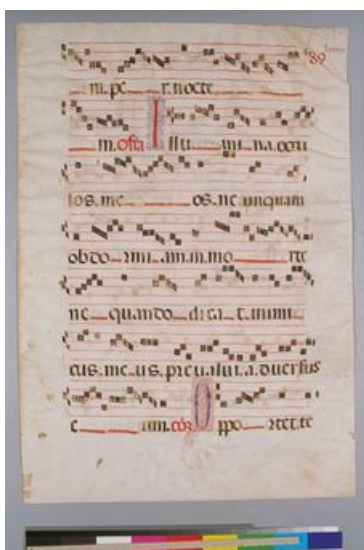 89
m. pe r. nocte
m. offa Illu mi na. ocu
los. me os. ne unquam
obdo rmi am. in. mo rte
ne quando dica t. inimi
cus. me us. preualui. a duersus
e um. cõz Oppo rtet. te